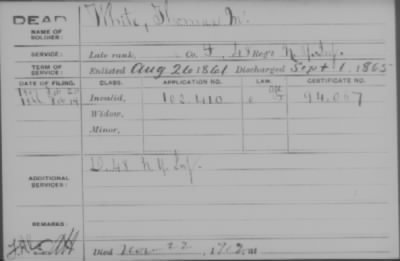 DEAD
NAME OF SOLDIER:
White, Thomas M.
SERVICE:
Late rank, Co. F, Reg't N.Y. Inf.
TERM OF SERVICE:
Enlisted Aug 26 1861 Discharged Sept 1, 1865
DATE OF FILING.
CLASS.
APPLICATION NO.
LAW.
CERTIFICATE NO.
Invalid,
102.410
94.067
Widow,
Minor,
ADDITIONAL SERVICES:
D. 48 N.Y. Inf.
REMARKS:
Died 22, 1902, at